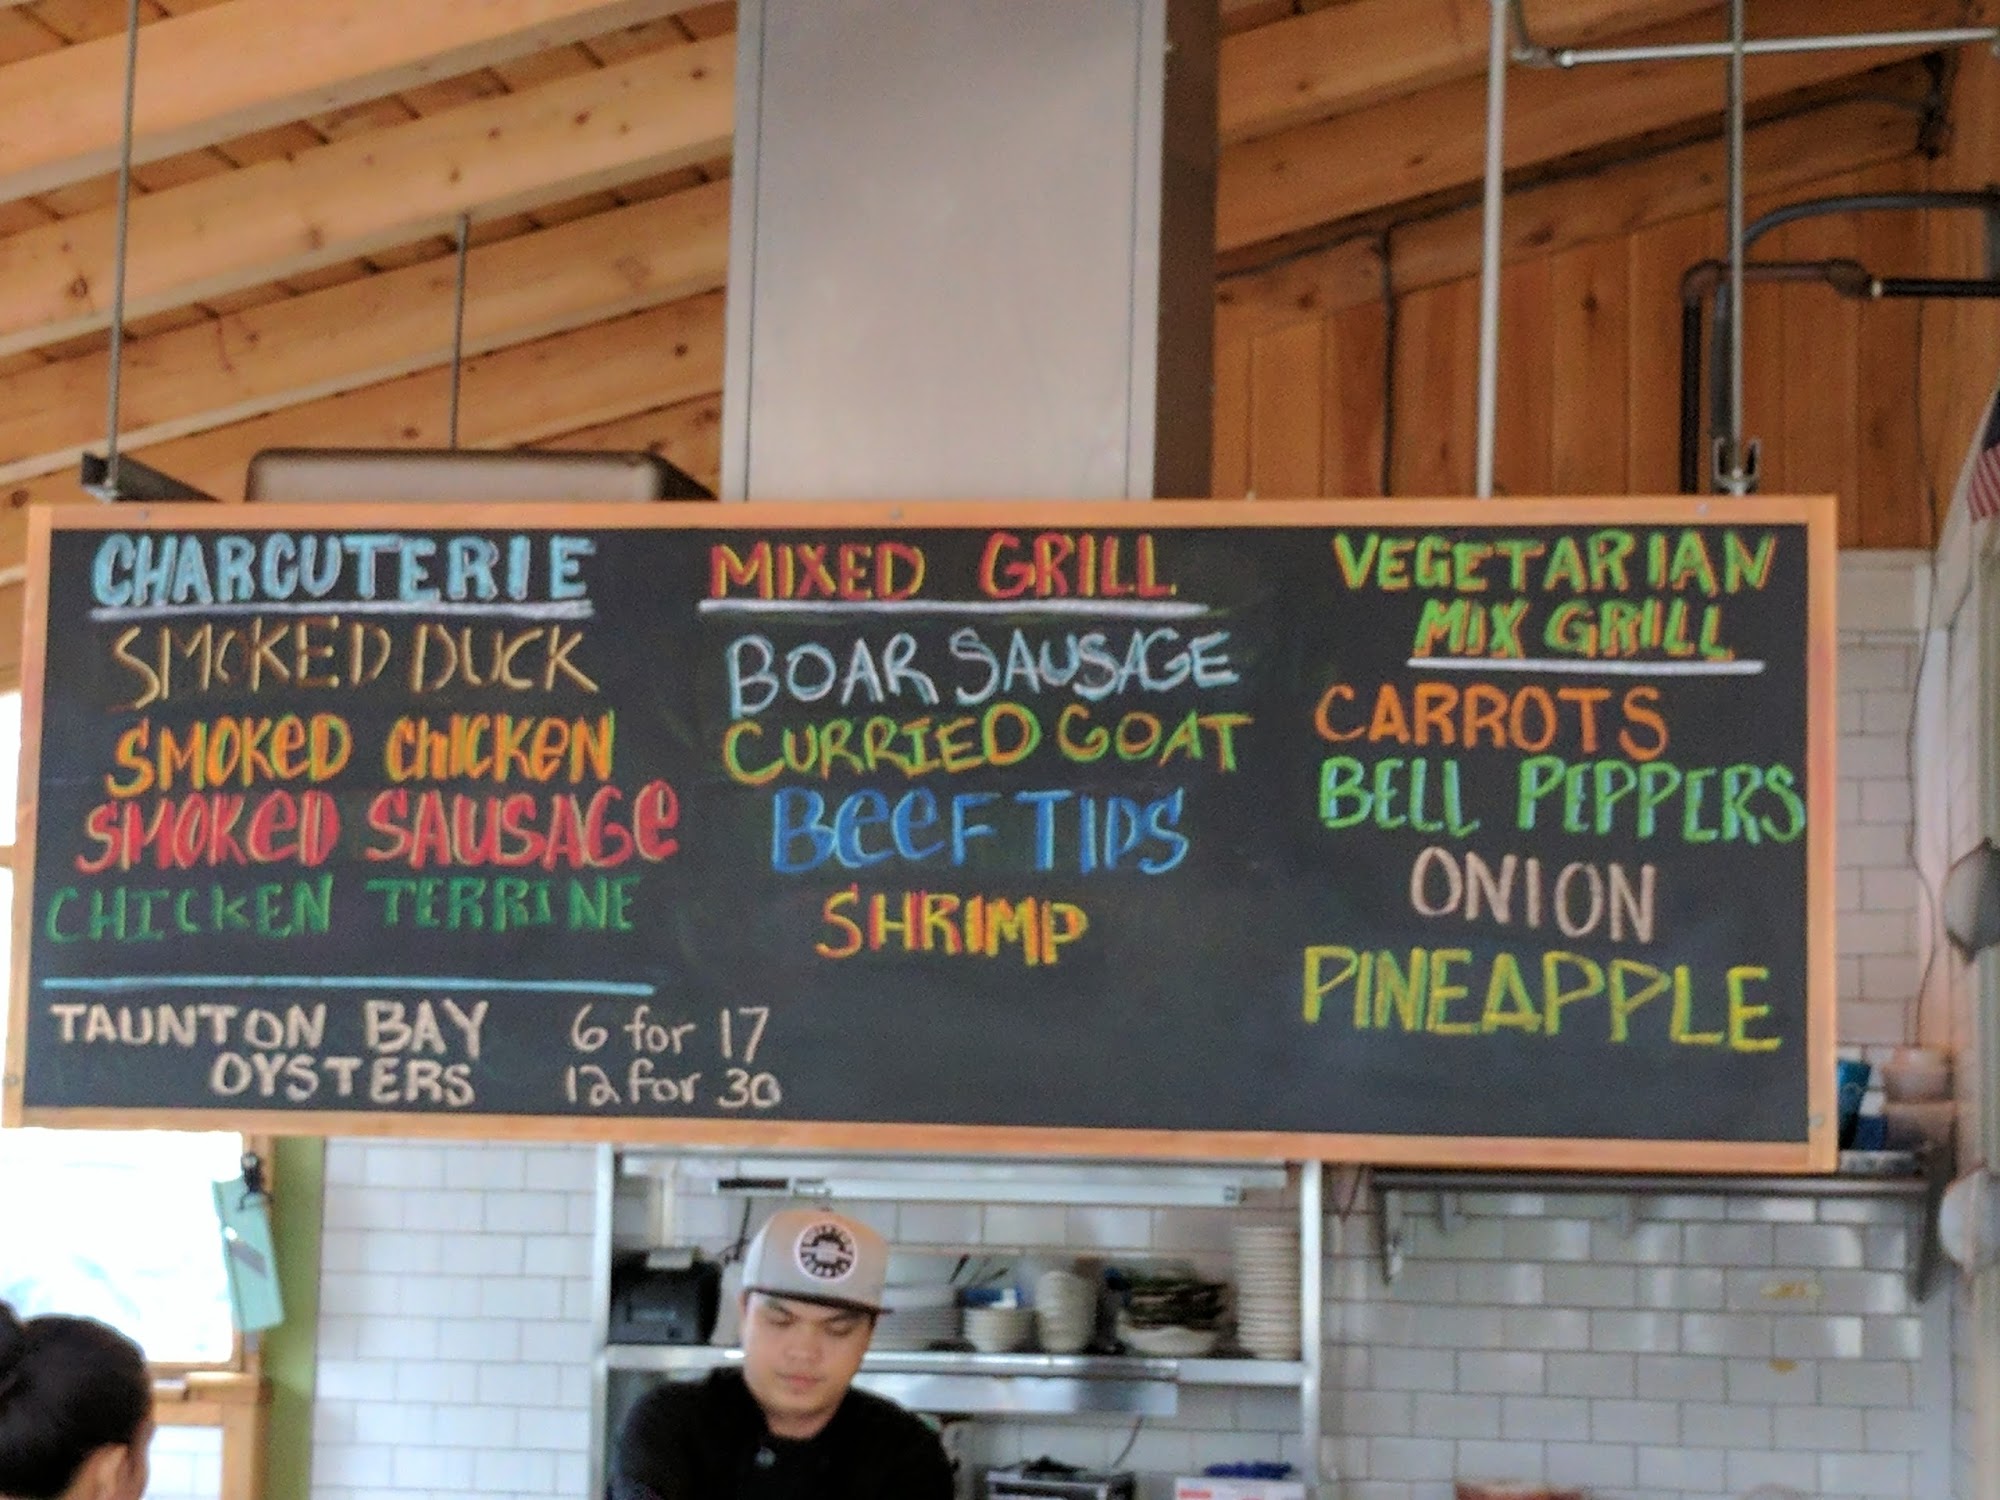 CHARCUTERIE
SMOKED DUCK
SMOKeD ChICKeN
SMOKeD SAUSAGe
CHICKEN TERRINE
TAUNTON BAY 6 for 17
OYSTERS 12 for 30
MIXED GRILL
BOAR SAUSAGE
CURRIED GOAT
BeeF TIPS
SHRIMP
VEGETARIAN
MIX GRILL
CARROTS
BELL PEPPERS
ONION
PINEAPPLE